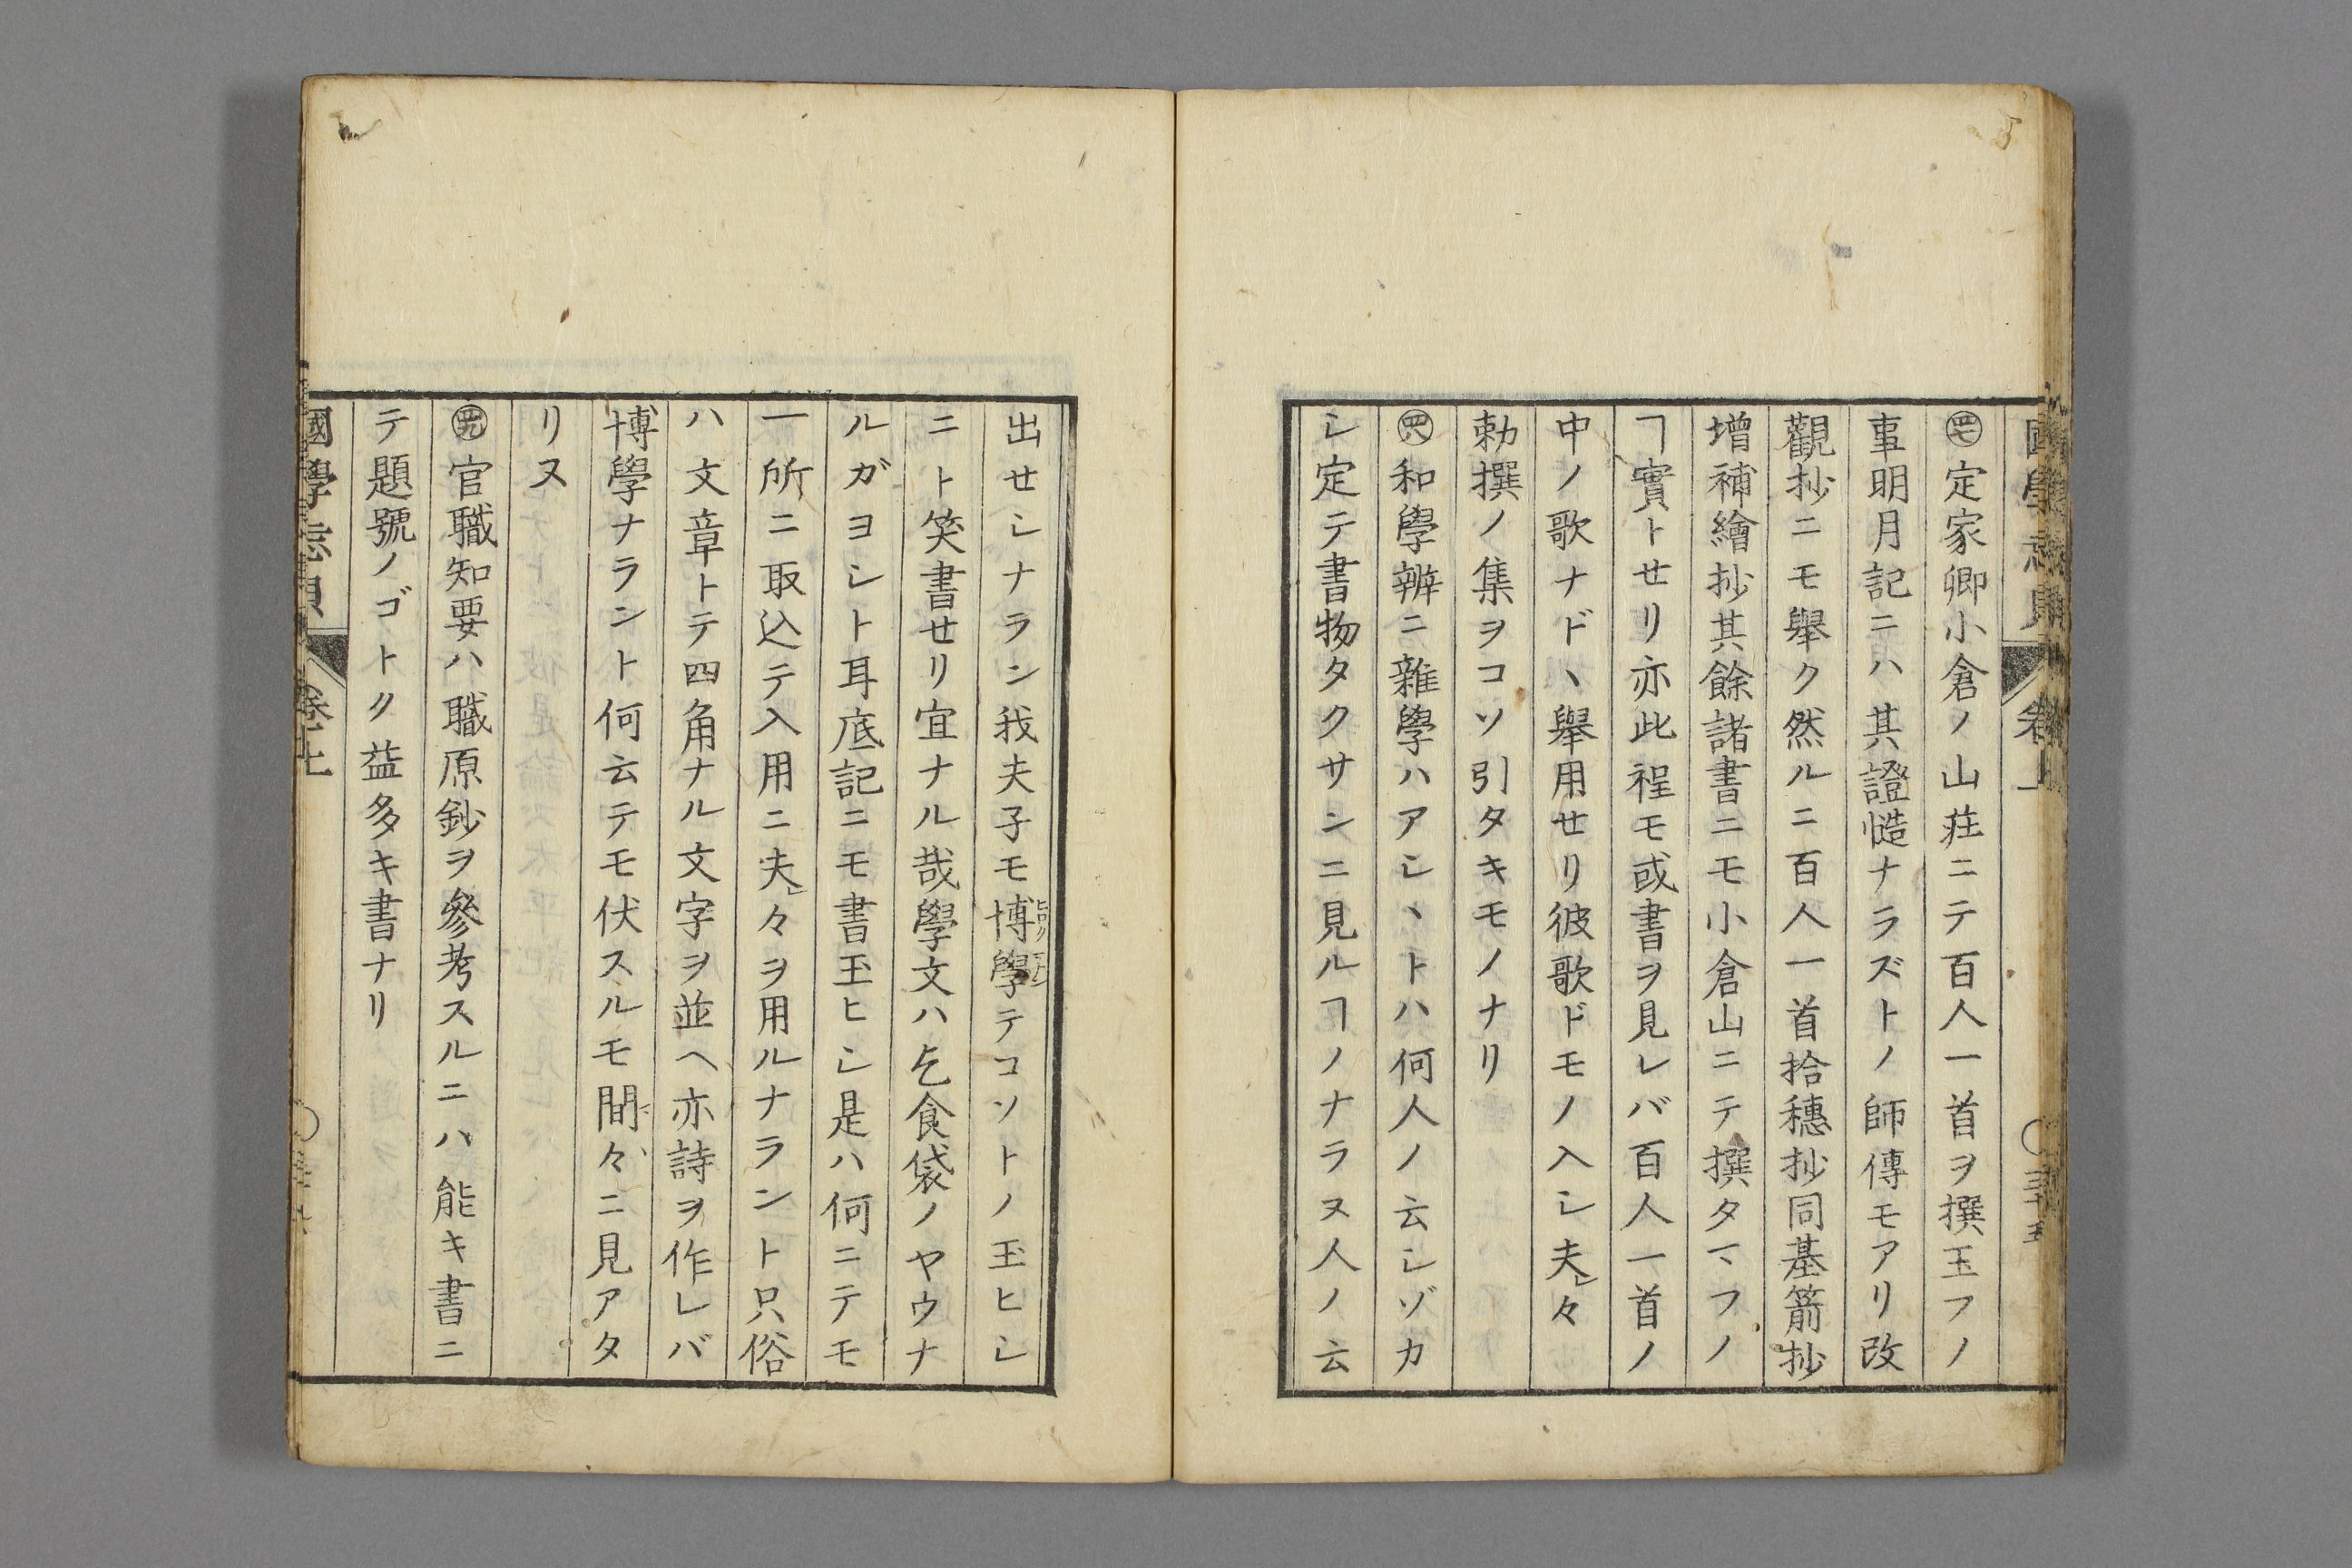 ㊼定家卿小倉ノ山莊ニテ百人一首ヲ撰玉フノ
事明月記ニハ其證慥ナラズトノ師傳モアリ改
觀抄ニモ舉ク然ルニ百人一首拾穗抄同基箭抄
增補繪抄其餘諸書ニモ小倉山ニテ撰タマフノ
ヿ實トせリ亦此程モ或書ヲ見レバ百人一首ノ
中ノ歌ナドヽ舉用せリ彼歌ドモノ入シ夫々
勅撰ノ集ヲコソ引タキモノナリ
㊽和學辨ニ雜學ハアシヽトハ何人ノ云シゾカ
シ定テ書物タクサンニ見ルヿノナラヌ人ノ云
出せシナラン我夫子モ博學テコソトノ玉ヒシ
ニト笑書せリ宜ナル哉學文ハ乞食袋ノヤウナ
ルガヨシト耳底記ニモ書玉ヒシ是ハ何ニテモ
一所ニ取込テ入用ニ夫々ヲ用ルナラント只俗
ハ文章トテ四角ナル文字ヲ並ヘ亦詩ヲ作レバ
博學ナラント何云テモ伏スルモ間々ニ見アタ
リヌ
㊾官職知要ハ職原鈔ヲ參考スルニハ能キ書ニ
テ題號ノゴトク益多キ書ナリ